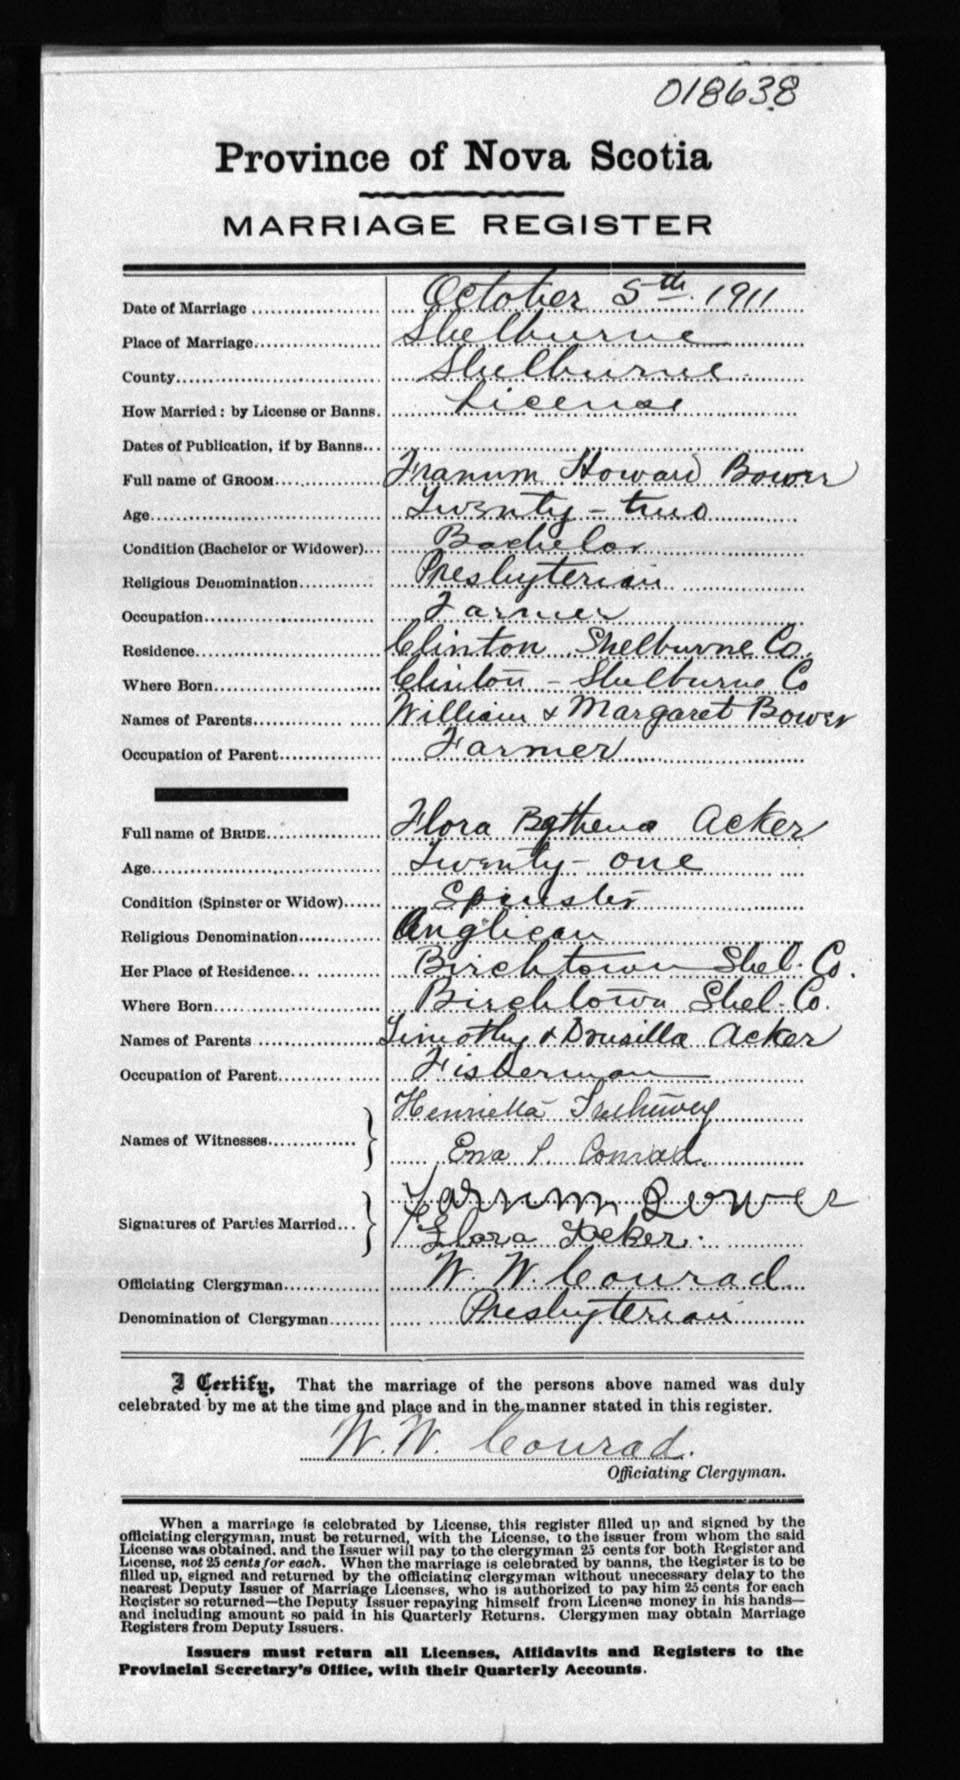 018638
Province of Nova Scotia
MARRIAGE REGISTER
Date of Marriage .................... October 5th 1911
Place of Marriage.................... Shelburne
County.................... Shelburne
How Married: by License or Banns. License
Dates of Publication, if by Banns...
Full name of GROOM.................... Franum Howard Bower
Age.................... Twenty-two
Condition (Bachelor or Widower)... Bachelor
Religious Denomination............ Presbyterian
Occupation.................... Farmer
Residence.................... Clinton Shelburne Co.
Where Born.................... Clinton - Shelburne Co
Names of Parents.................... William & Margaret Bower
Occupation of Parent.................... Farmer
Full name of BRIDE.................... Flora Acker
Age.................... Twenty-one
Condition (Spinster or Widow)...... Spinster
Religious Denomination............ Anglican
Her Place of Residence... ............ Birchtown Shel. Co.
Where Born.................... Birchtown Shel. Co.
Names of Parents .................... Timothy & Drusilla Acker
Occupation of Parent.................... Fisherman
Henrietta
Names of Witnesses....................
Ena P. Conrad.
Farnum Bower
Signatures of Parties Married...
Flora Acker.
Officiating Clergyman.................... W. W. Conrad
Denomination of Clergyman........ Presbyterian
I Certify, That the marriage of the persons above named was duly
celebrated by me at the time and place and in the manner stated in this register.
W. W. Conrad.
Officiating Clergyman.
When a marriage is celebrated by License, this register filled up and signed by the
officiating clergyman, must be returned, with the License, to the issuer from whom the said
License was obtained, and the Issuer will pay to the clergyman 25 cents for both Register and
License, not 25 cents for each. When the marriage is celebrated by banns, the Register is to be
filled up, signed and returned by the officiating clergyman without unecessary delay to the
nearest Deputy Issuer of Marriage Licenses, who is authorized to pay him 25 cents for each
Register so returned—the Deputy Issuer repaying himself from License money in his hands—
and including amount so paid in his Quarterly Returns. Clergymen may obtain Marriage
Registers from Deputy Issuers.
Issuers must return all Licenses, Affidavits and Registers to the
Provincial Secretary's Office, with their Quarterly Accounts.